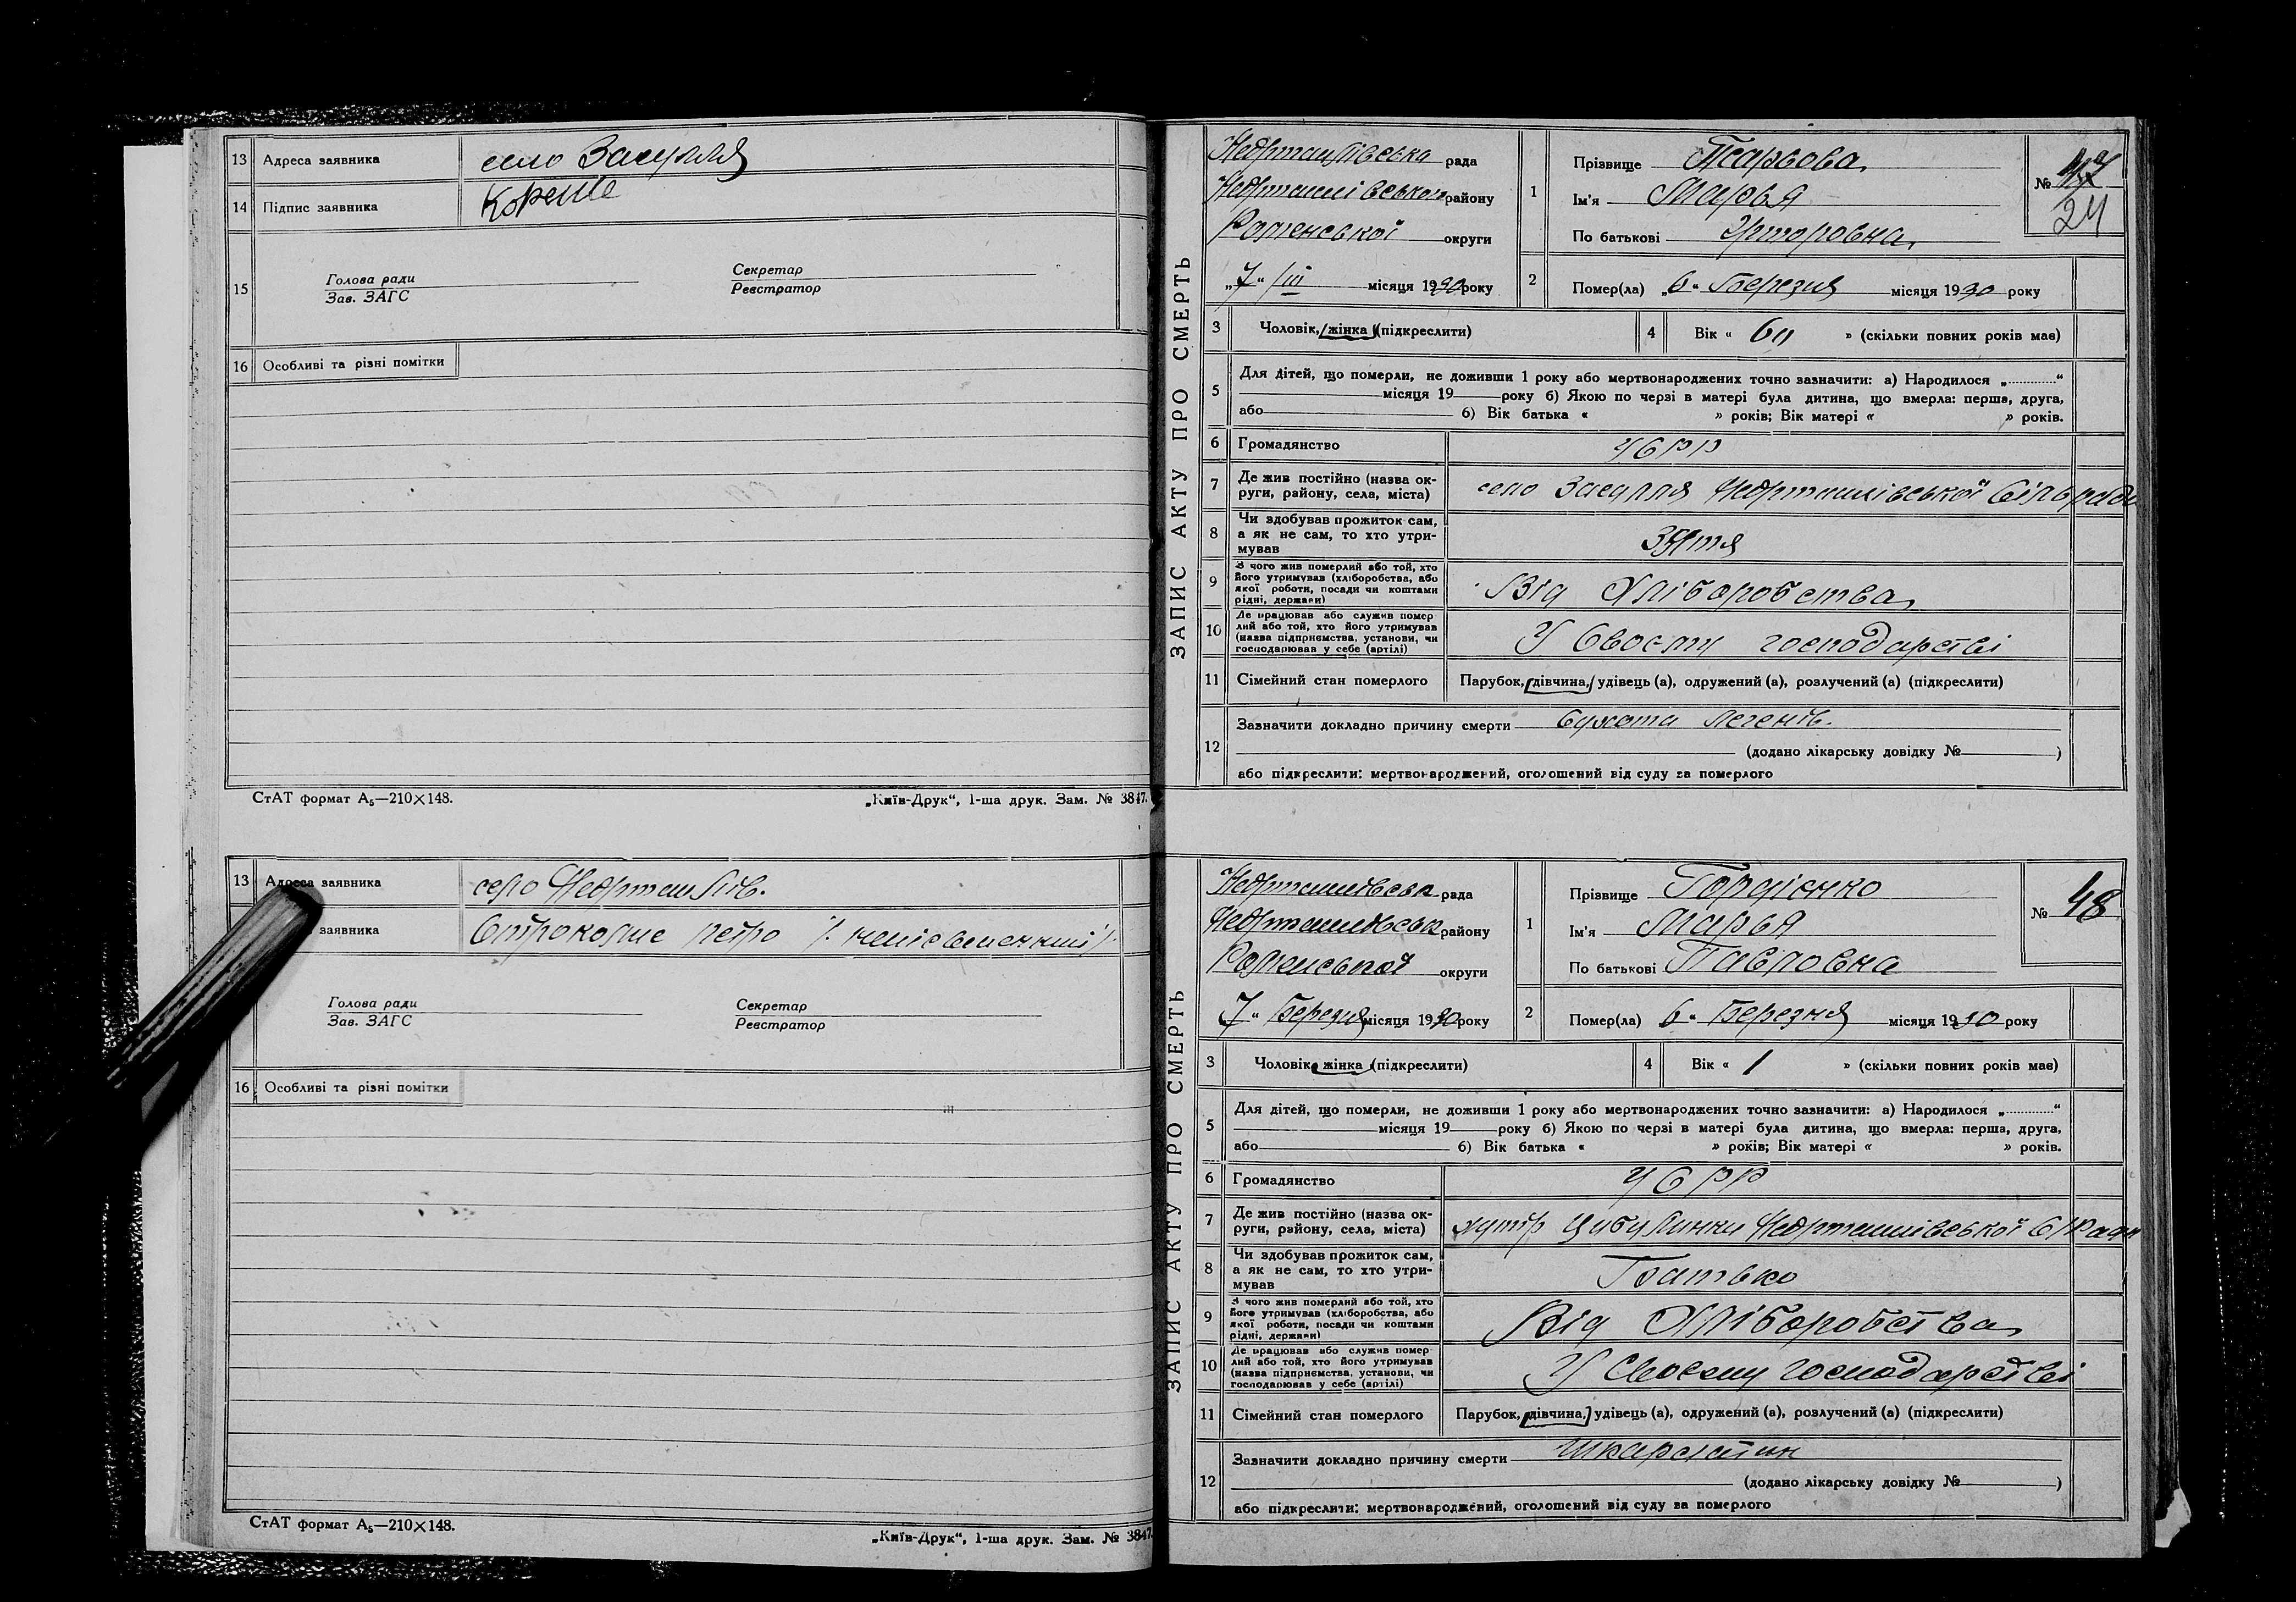 13 Адреса заявника село Засулля
14 Підпис заявника
15 Голова ради Секретар
Зав. ЗАГС Реєстратор
16 Особливі та різні помітки
СтАТ формат А₅—210×148. „Київ-Друк“, 1-ша друк. Зам. № 3847.
13 Адреса заявника село
заявника Петро
Голова ради Секретар
Зав. ЗАГС Реєстратор
16 Особливі та різні помітки
СтАТ формат А₅—210×148. „Київ-Друк“, 1-ша друк. Зам. № 3847.
ЗАПИС АКТУ ПРО СМЕРТЬ
рада
району
Роменської округи
„7“ /III місяця 1930 року
1 Прізвище
Ім'я Марья
По батькові
№ 47
24
2 Помер(ла) „6“ Березня місяця 1930 року
3 Чоловік, жінка (підкреслити)
4 Вік « 60 » (скільки повних років має)
5 Для дітей, що померли, не доживши 1 року або мертвонароджених точно зазначити: а) Народилося „............“
місяця 19 року б) Якою по черзі в матері була дитина, що вмерла: перша, друга,
або б) Вік батька « » років; Вік матері « » років.
6 Громадянство УСРР
7 Де жив постійно (назва ок-
руги, району, села, міста) село Засулля Недригайлівської Сільради
8 Чи здобував прожиток сам,
а як не сам, то хто утри-
мував Зятя
9 З чого жив померлий або той, хто
його утримував (хліборобства, або
якої роботи, посади чи коштами
рідні, держави) Від Хліборобства
10 Де працював або служив помер
лий або той, хто його утримував
(назва підприємства, установи, чи
господарював у себе (артілі) У Своєму господарстві
11 Сімейний стан померлого Парубок, дівчина, удівець (а), одружений (а), розлучений (а) (підкреслити)
12 Зазначити докладно причину смерти Сухота легенів.
(додано лікарську довідку № )
або підкреслити: мертвонароджений, оголошений від суду за померлого
ЗАПИС АКТУ ПРО СМЕРТЬ
рада
району
Роменської округи
7“ Березня місяця 1930 року
1 Прізвище Гордієнко
Ім'я Марья
По батькові Павловна
№ 48
2 Помер(ла) 6“ Березня місяця 1930 року
3 Чоловік, жінка (підкреслити)
4 Вік « 1 » (скільки повних років має)
5 Для дітей, що померли, не доживши 1 року або мертвонароджених точно зазначити: а) Народилося „............“
місяця 19 року б) Якою по черзі в матері була дитина, що вмерла: перша, друга,
або б) Вік батька « » років; Вік матері « » років.
6 Громадянство УСРР
7 Де жив постійно (назва ок-
руги, району, села, міста) хутір Недригайлівської С/Ради
8 Чи здобував прожиток сам,
а як не сам, то хто утри-
мував Батько
9 З чого жив померлий або той, хто
його утримував (хліборобства, або
якої роботи, посади чи коштами
рідні, держави) Від Хліборобства
10 Де працював або служив помер
лий або той, хто його утримував
(назва підприємства, установи, чи
господарював у себе (артілі) У Своєму господарстві
11 Сімейний стан померлого Парубок, дівчина, удівець (а), одружений (а), розлучений (а) (підкреслити)
12 Зазначити докладно причину смерти
(додано лікарську довідку № )
або підкреслити: мертвонароджений, оголошений від суду за померлого